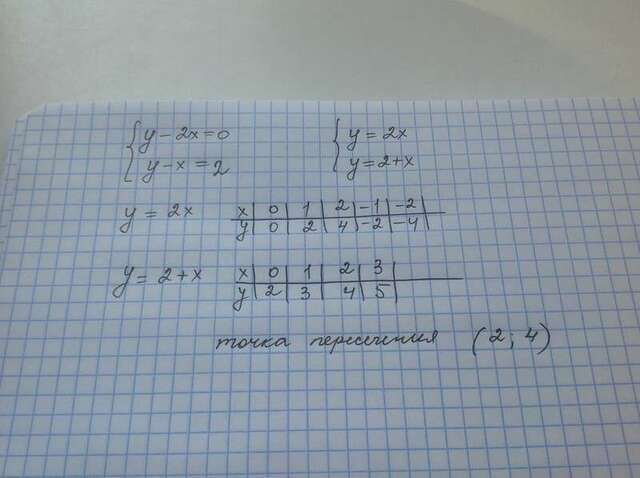 { y - 2x = 0 { y = 2x
y - x = 2 y = 2 + x
y = 2x x | 0 | 1 | 2 | -1 | -2 |
y | 0 | 2 | 4 | -2 | -4 |
y = 2 + x x | 0 | 1 | 2 | 3 |
y | 2 | 3 | 4 | 5 |
точка пересечения (2; 4)